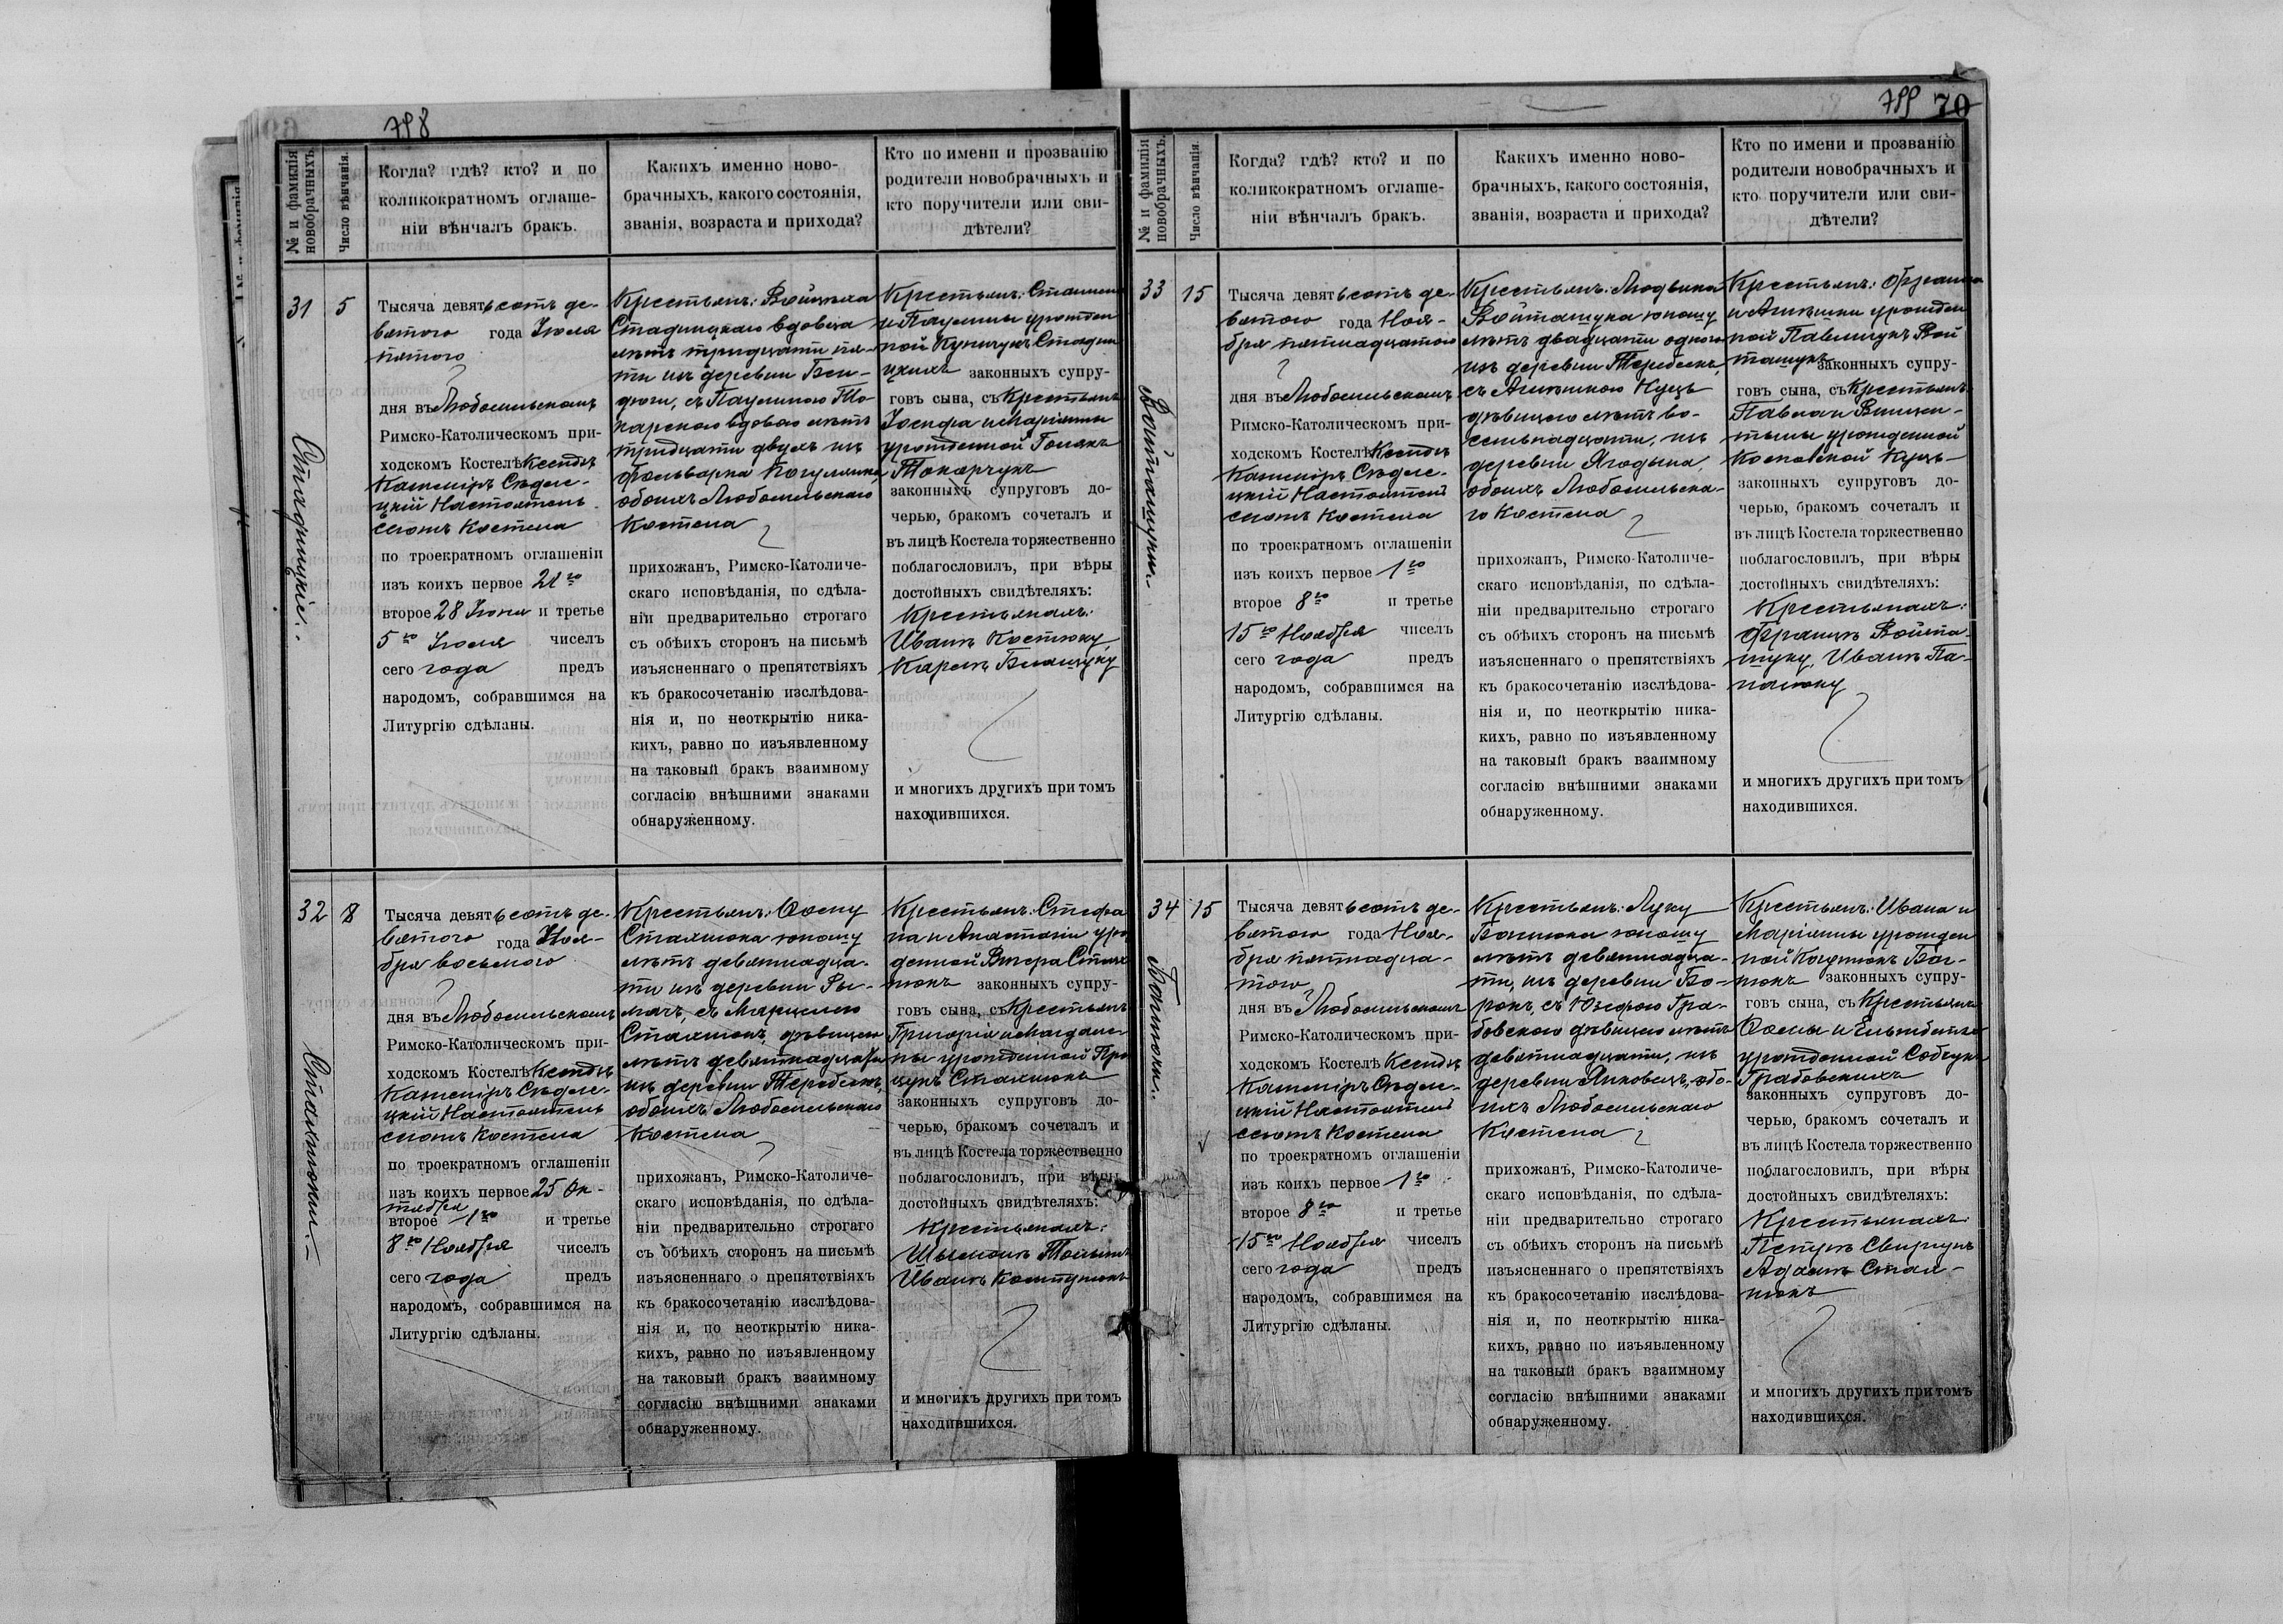 798
№ и фамилія новобрачныхъ.
Число вѣнчанія.
Когда? гдѣ? кто? и по
коликократномъ оглаше-
ніи вѣнчалъ бракъ.
Какихъ именно ново-
брачныхъ, какого состоянія,
званія, возраста и прихода?
Кто по имени и прозванію
родители новобрачныхъ и
кто поручители или сви-
дѣтели?
31
5
Стадницкіе.
Тысяча девятьсотъ де-
вятого года Іюля
пятого
дня въ Любомльскомъ
Римско-Католическомъ при-
ходскомъ Костелѣ Ксендзъ
Казиміръ Сѣдле-
цкій Настоятель
сего Костела
по троекратномъ оглашеніи
изъ коихъ первое 21го
второе 28 Іюня и третье
5го Іюля чиселъ
сего года предъ
народомъ, собравшимся на
Литургію сдѣланы.
Крестьянъ: Войцеха
Стадницкаго вдовца
лѣтъ тридцати пя-
ти изъ деревни Бен-
дюги, съ Паулиною То-
карскою вдовою лѣтъ
тридцати двухъ изъ
фольварка Когулянка,
обоихъ Любомльскаго
Костела
прихожанъ, Римско-Католиче-
скаго исповѣданія, по сдѣла-
ніи предварительно строгаго
съ обѣихъ сторонъ на письмѣ
изъясненнаго о препятствіяхъ
къ бракосочетанію изслѣдова-
нія и, по неоткрытію ника-
кихъ, равно по изъявленному
на таковый бракъ взаимному
согласію внѣшними знаками
обнаруженному.
Крестьянъ:
и Паулины урожден
ной Куничукъ Стадни
цкихъ законныхъ супру-
говъ сына, съ Крестьянъ
Іосифа и Маріанны
урожденной
Токарчукъ
законныхъ супруговъ до-
черью, бракомъ сочеталъ и
въ лицѣ Костела торжественно
поблагословилъ, при вѣры
достойныхъ свидѣтеляхъ:
Крестьянахъ:
Иванѣ Костюку,
Каролѣ
и многихъ другихъ при томъ
находившихся.
32
8
Сталинюки.
Тысяча девятьсотъ де-
вятого года Ноя-
бря восьмого
дня въ Любомльскомъ
Римско-Католическомъ при-
ходскомъ Костелѣ Ксендзъ
Казиміръ Сѣдле-
цкій Настоятель
сего Костела
по троекратномъ оглашеніи
изъ коихъ первое 25 Ок-
тября
второе 1го и третье
8го Ноября чиселъ
сего года предъ
народомъ, собравшимся на
Литургію сдѣланы.
Крестьянъ: Ѳому
юношу
лѣтъ девятнадца-
ти изъ деревни Ры-
мачъ, съ Марцелею
дѣвицею
лѣтъ девятнадцати
изъ деревни Теребейки,
обоихъ Любомльскаго
Костела
прихожанъ, Римско-Католиче-
скаго исповѣданія, по сдѣла-
ніи предварительно строгаго
съ обѣихъ сторонъ на письмѣ
изъясненнаго о препятствіяхъ
къ бракосочетанію изслѣдова-
нія и, по неоткрытію ника-
кихъ, равно по изъявленному
на таковый бракъ взаимному
согласію внѣшними знаками
обнаруженному.
Крестьянъ: Стефа
на и Анастасіи уро
денной
законныхъ супру-
говъ сына, съ Крестьянъ
Григорія и Магдале-
ны урожденной
законныхъ супруговъ до-
черью, бракомъ сочеталъ и
въ лицѣ Костела торжественно
поблагословилъ, при вѣры
достойныхъ свидѣтеляхъ:
Крестьянахъ:
Иванѣ
и многихъ другихъ при томъ
находившихся.
799 70
№ и фамилія новобрачныхъ.
Число вѣнчанія.
Когда? гдѣ? кто? и по
коликократномъ оглаше-
ніи вѣнчалъ бракъ.
Какихъ именно ново-
брачныхъ, какого состоянія,
званія, возраста и прихода?
Кто по имени и прозванію
родители новобрачныхъ и
кто поручители или сви-
дѣтели?
33
15
Войташуки.
Тысяча девятьсотъ де-
вятого года Ноя-
бря пятнадцатого
дня въ Любомльскомъ
Римско-Католическомъ при-
ходскомъ Костелѣ Ксендзъ
Казиміръ Сѣдле-
цкій Настоятель
сего Костела
по троекратномъ оглашеніи
изъ коихъ первое 1го
второе 8го и третье
15го Ноября чиселъ
сего года предъ
народомъ, собравшимся на
Литургію сдѣланы.
Крестьянъ: Людвика
Войташука юношу
лѣтъ двадцати одного
изъ деревни Теребейки,
съ Агнѣшкою Куцъ
дѣвицею лѣтъ во-
семьнадцати, изъ
деревни Ягодына,
обоихъ Любомльска-
го Костела
прихожанъ, Римско-Католиче-
скаго исповѣданія, по сдѣла-
ніи предварительно строгаго
съ обѣихъ сторонъ на письмѣ
изъясненнаго о препятствіяхъ
къ бракосочетанію изслѣдова-
нія и, по неоткрытію ника-
кихъ, равно по изъявленному
на таковый бракъ взаимному
согласію внѣшними знаками
обнаруженному.
Крестьянъ: Франца
и Агнѣшки урожден
ной Павлищукъ Вой
ташукъ законныхъ супру-
говъ сына, съ Крестьянъ
Павла и Викен-
тыны урожденной
Косковской Куцъ
законныхъ супруговъ до-
черью, бракомъ сочеталъ и
въ лицѣ Костела торжественно
поблагословилъ, при вѣры
достойныхъ свидѣтеляхъ:
Крестьянахъ:
Францѣ Войта-
шуку, Иванѣ Па-
налюку
и многихъ другихъ при томъ
находившихся.
34
15
Тысяча девятьсотъ де-
вятого года Ноя-
бря пятнадца-
того
дня въ Любомльскомъ
Римско-Католическомъ при-
ходскомъ Костелѣ Ксендзъ
Казиміръ Сѣдле-
цкій Настоятель
сего Костела
по троекратномъ оглашеніи
изъ коихъ первое 1го
второе 8го и третье
15го Ноября чиселъ
сего года предъ
народомъ, собравшимся на
Литургію сдѣланы.
Крестьянъ: Луку
юношу
лѣтъ девятнадца-
ти, изъ деревни Бо-
рокъ, съ Юзефою Гра-
бовскою дѣвицею лѣтъ
девятнадцати, изъ
деревни Янковецъ, обо-
ихъ Любомльскаго
Костела
прихожанъ, Римско-Католиче-
скаго исповѣданія, по сдѣла-
ніи предварительно строгаго
съ обѣихъ сторонъ на письмѣ
изъясненнаго о препятствіяхъ
къ бракосочетанію изслѣдова-
нія и, по неоткрытію ника-
кихъ, равно по изъявленному
на таковый бракъ взаимному
согласію внѣшними знаками
обнаруженному.
Крестьянъ: Ивана и
Маріанны урожден
ной
законныхъ супру-
говъ сына, съ Крестьянъ
Ѳомы и Ельжбеты
урожденной
Грабовскихъ
законныхъ супруговъ до-
черью, бракомъ сочеталъ и
въ лицѣ Костела торжественно
поблагословилъ, при вѣры
достойныхъ свидѣтеляхъ:
Крестьянахъ:
Петрѣ Свирчукъ
Адамѣ
и многихъ другихъ при томъ
находившихся.